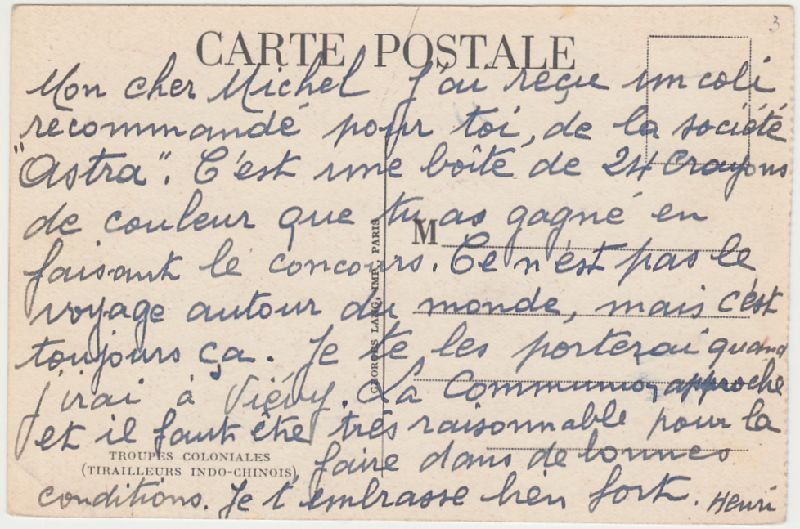 3
CARTE POSTALE
Mon cher Michel J'ai reçu un coli
recommandé pour toi, de la société
"Astra". C'est une boîte de 24 crayons
de couleur que tu as gagné en
M
faisant le concours. Ce n'est pas le
voyage autour du monde, mais c'est
toujours ça. Je te les porterai quand
j'irai à Viévy. La Communion approche
et il faut être très raisonnable pour la
TROUPES COLONIALES
(TIRAILLEURS INDO-CHINOIS)
faire dans de bonnes
conditions. Je t'embrasse bien fort. Henri
GEORGES LANG, IMP., PARIS